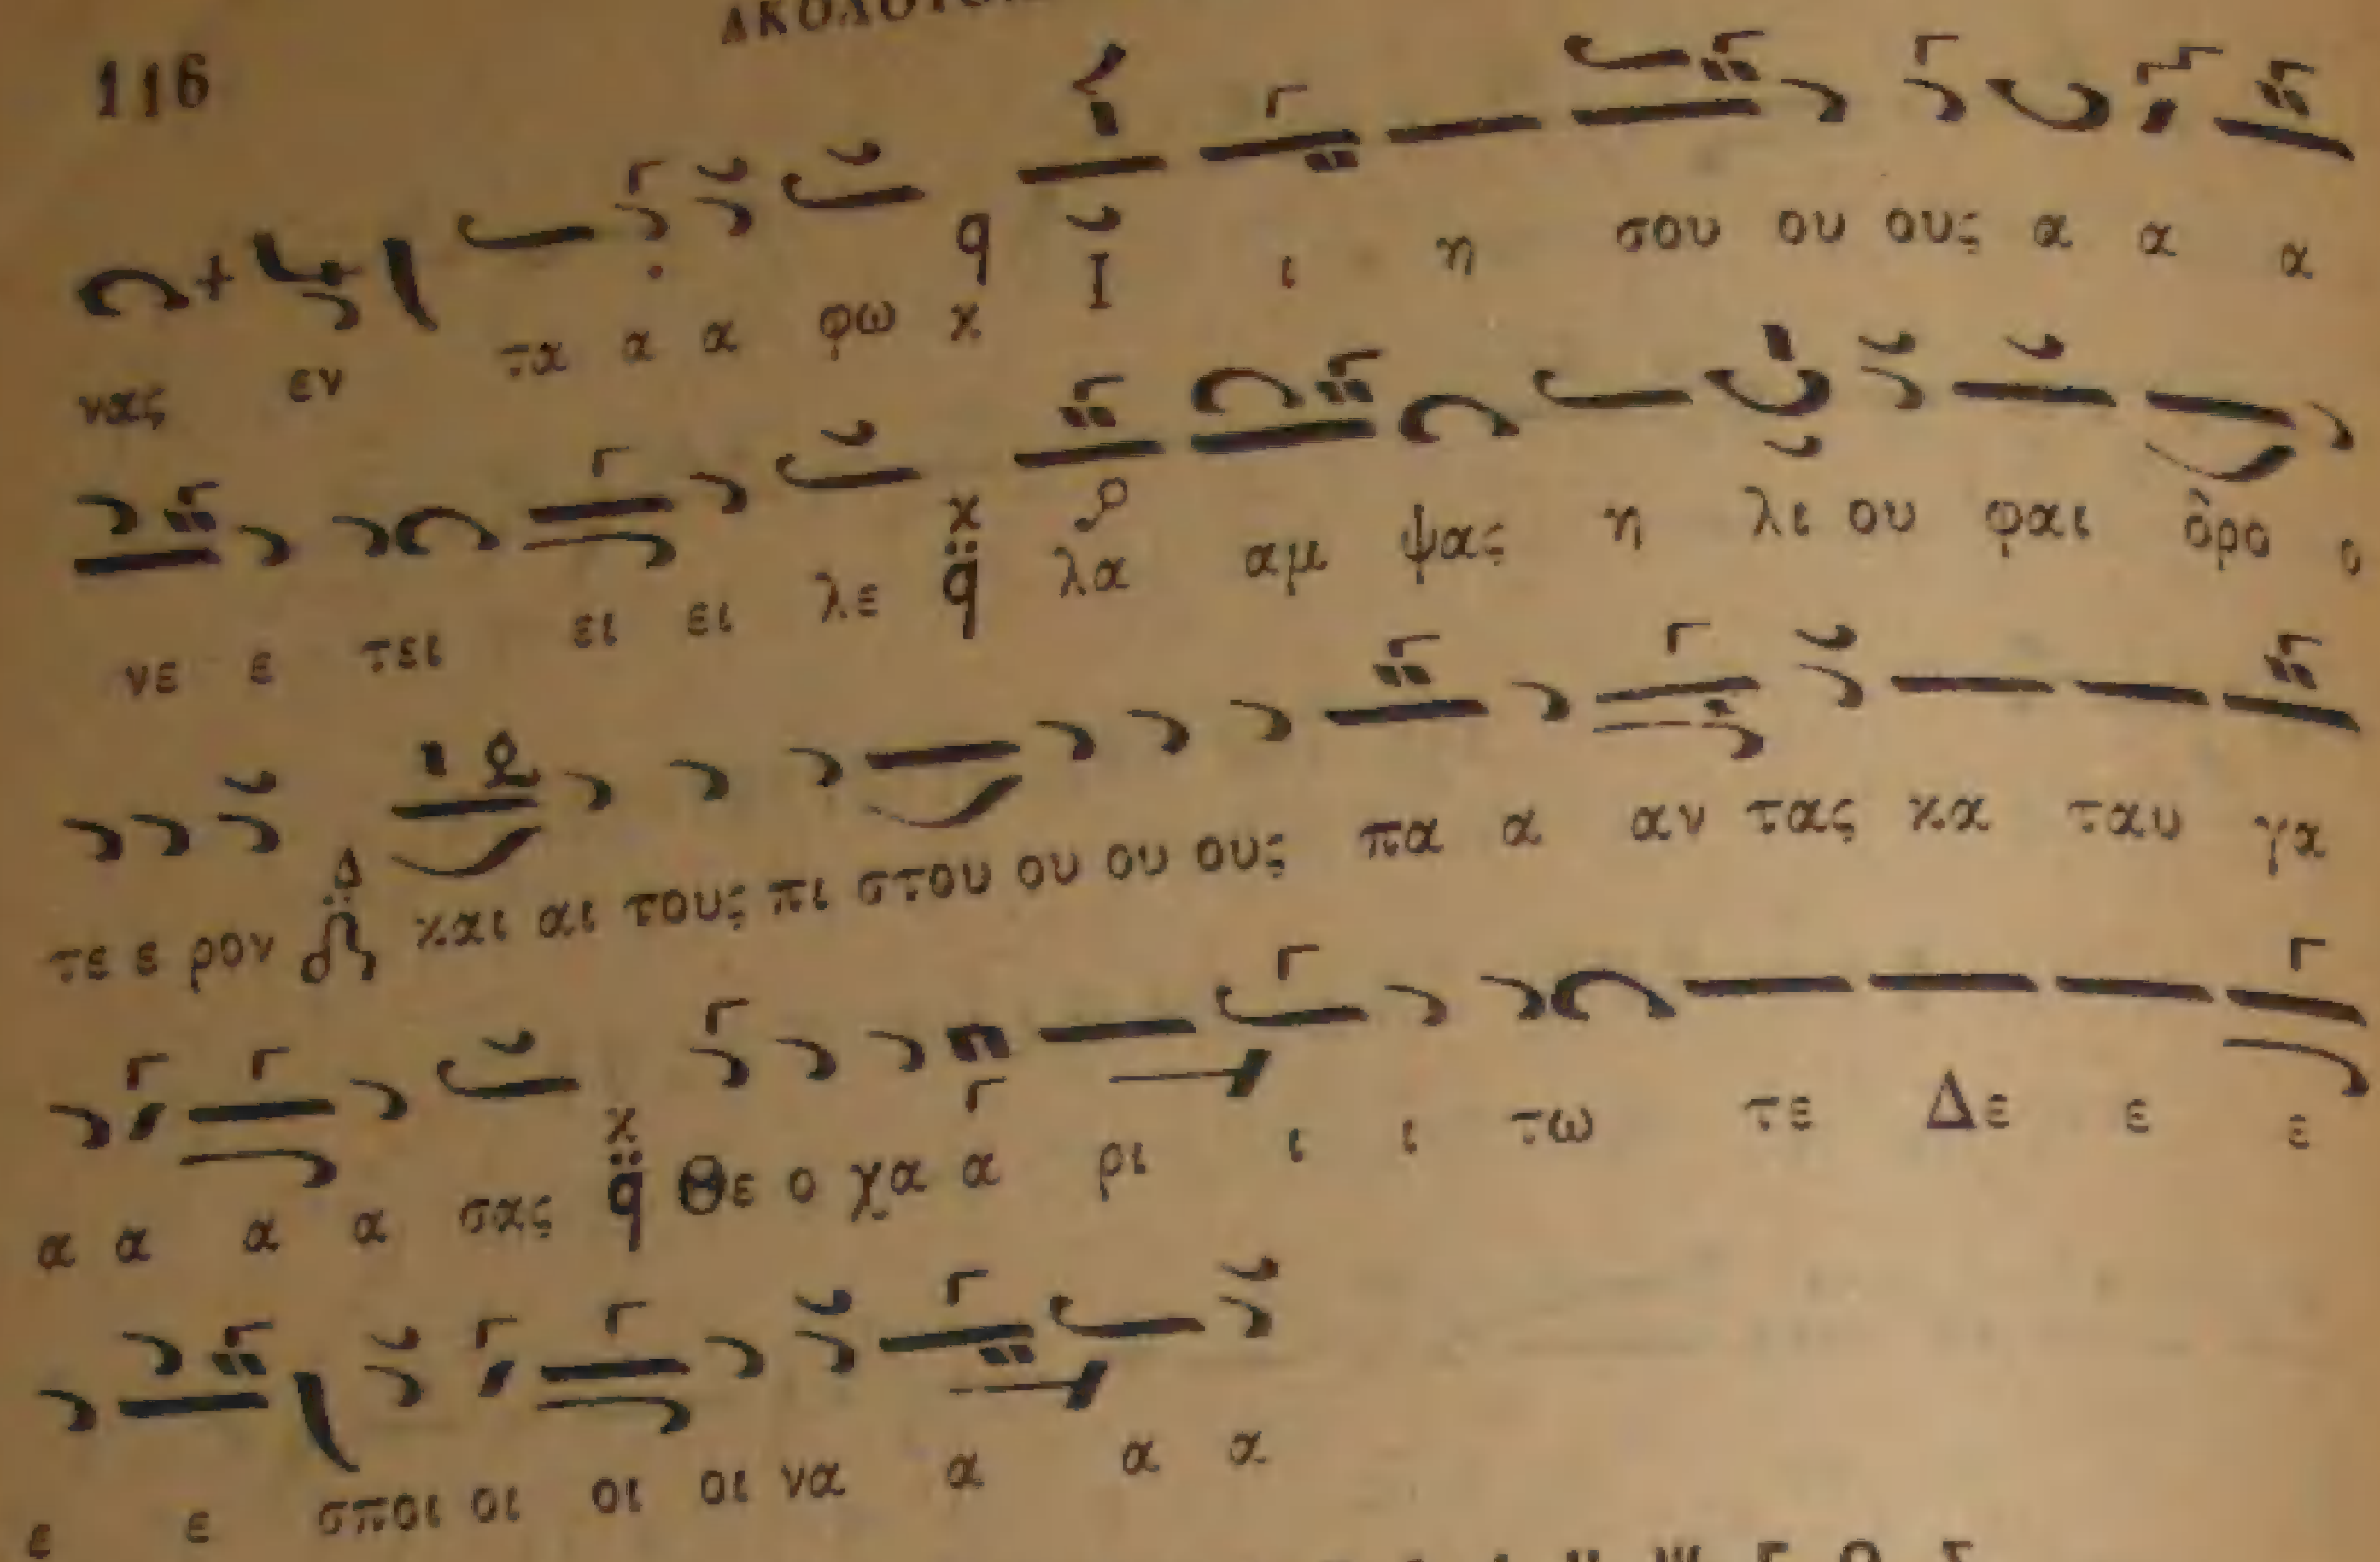 116
νας εν τα α α φω Ι ι η σου ου ους α α α
νε ε τει ει ει λε λα αμ ψας η λι ου φαι ὃρο ο
τε ε ρον και αι τους πι στου ου ου ους πα α αν τας κα ταυ γα
α α α α σας Θε ο χα α ρι ι ι τω τε Δε ε ε
ε ε σποι οι οι οι να α α α